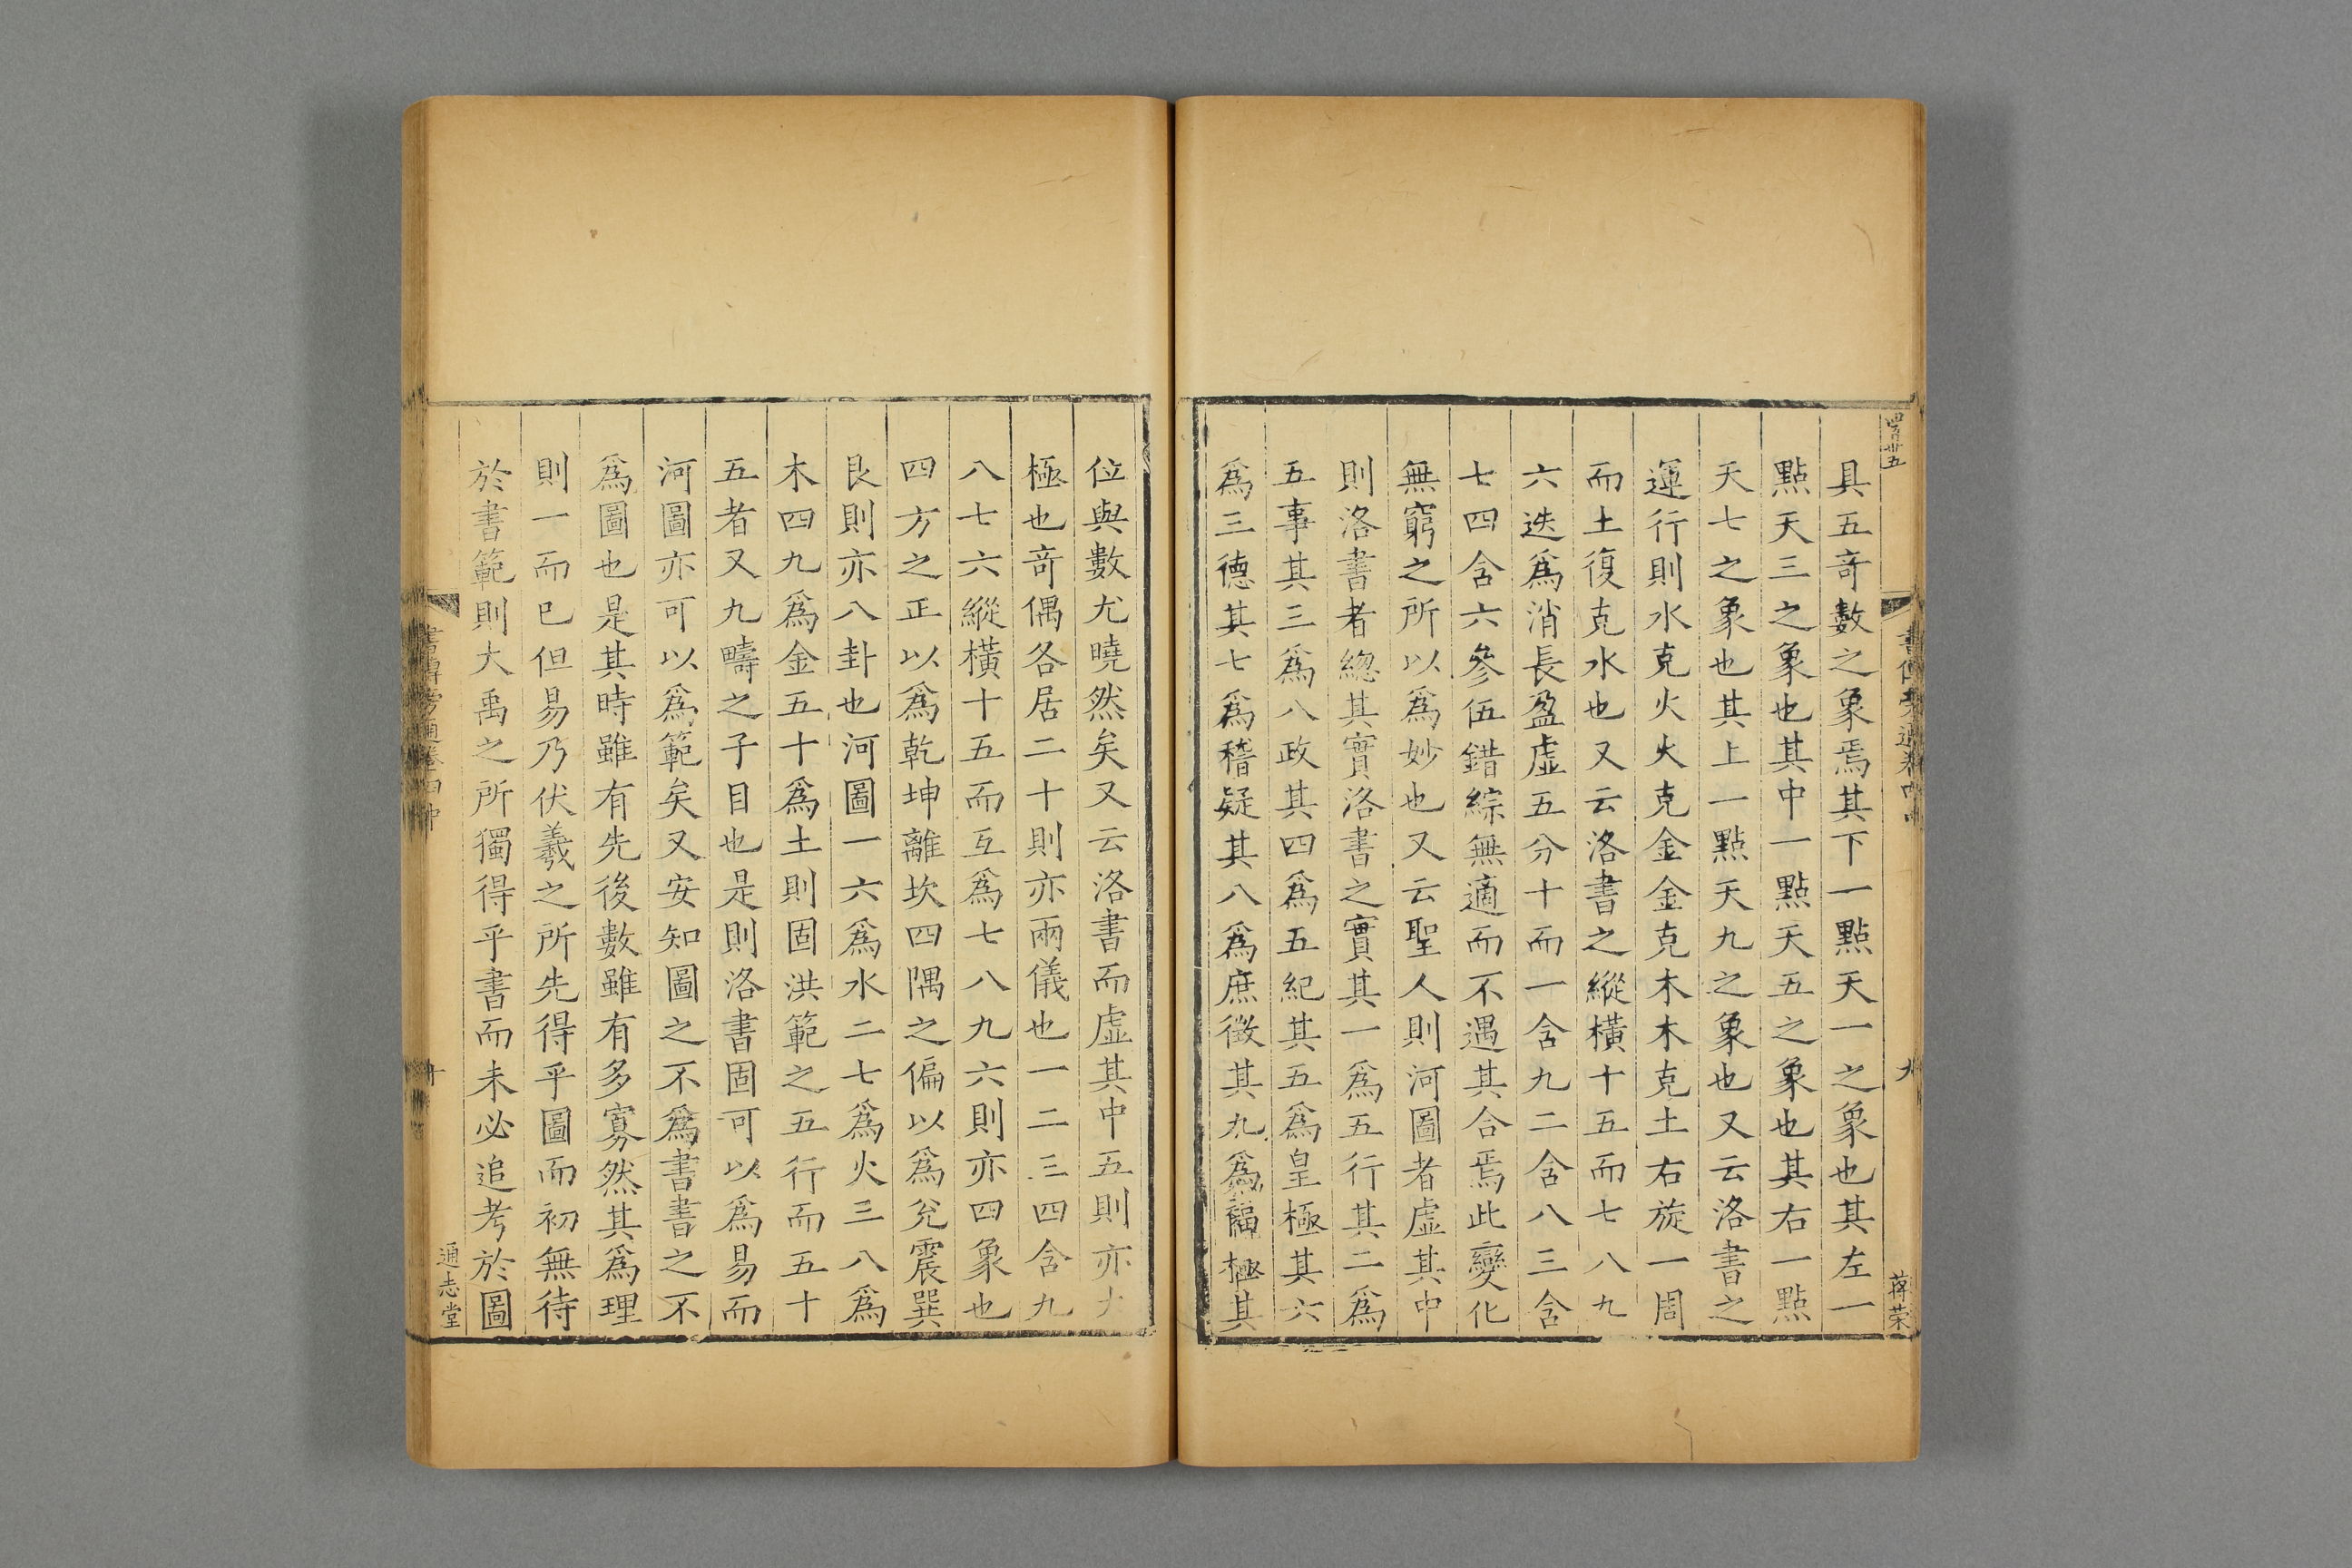 具五竒數之象焉其下一點天一之象也其左一
點天三之象也其中一點天五之象也其右一點
天七之象也其上一點天九之象也又云洛書之
運行則水克火火克金金克木木克土右旋一周
而土復克水也又云洛書之縱橫十五而七八九
六迭爲消長盈虛五分十而一含九二含八三含
七四含六參伍錯綜無適而不遇其合焉此變化
無窮之所以爲妙也又云聖人則河圖者虛其中
則洛書者總其實洛書之實其一爲五行其二爲
五事其三爲八政其四爲五紀其五爲皇極其六
爲三德其七爲稽疑其八爲庶徵其九爲福極其
位與數尤曉然矣又云洛書而虛其中五則亦大
極也竒偶各居二十則亦兩儀也一二三四含九
八七六縱橫十五而互爲七八九六則亦四象也
四方之正以爲乾坤離坎四隅之偏以爲兌震巽
艮則亦八卦也河圖一六爲水二七爲火三八爲
木四九爲金五十爲土則固洪範之五行而五十
五者又九疇之子目也是則洛書固可以爲易而
河圖亦可以爲範矣又安知圖之不爲書書之不
爲圖也是其時雖有先後數雖有多寡然其爲理
則一而已但易乃伏羲之所先得乎圖而初無待
於書範則大禹之所獨得乎書而未必追考於圖
書傳旁通卷四中
十
通志堂
九
蔣榮